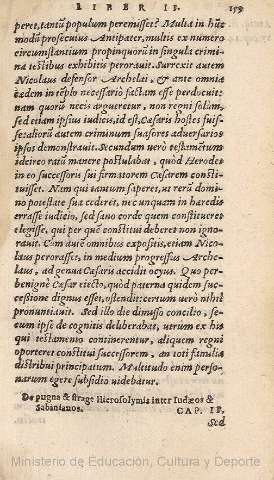 LIBER II. 159
peret, tantũ populum peremisset? Multa in hũc
modũ prosecutus Antipater, multis ex numero
circumstantium propinquorũ in singula crimina
testibus exhibitis perorauit. Surrexit autem
Nicolaus defensor Archelai, & ante omnia
cædem in tẽplo necessariò factam esse perdocuit:
nam quorũ necis argueretur, non regni solùm,
sed etiam ipsius iudicis, id est, Cæsaris hostes fuisse:
aliorũ autem criminum suasores aduersarios
ipsos demonstrauit. Secundum uerò testamentum
idcirco ratũ manere postulabat, quòd Herodes
in eo successoris sui firmatorem Cæsarem constituisset.
Nam qui tantum saperet, ut rerũ domino
potestate sua cederet, nec unquam in hæredis
errasse iudicio, sed sano corde quem constitueret
elegisse, qui per quẽ constitui deberet non ignorauit.
Cum autẽ omnibus expositis, etiam Nicolaus
perorasset, in medium progressus Archelaus,
ad genua Cæsaris accidit ocyus. Quo perbenignè
Cæsar erecto, quòd paterna quidem successione
dignus esset, ostendit: certum uerò nihil
pronuntiauit. Sed illo die dimisso concilio, secum
ipse de cognitis deliberabat, utrum ex his
qui testamento continerentur, aliquem regni
oporteret constitui successorem, an toti familiæ
distribui principatum. Multitudo enim personarum
egere subsidio uidebatur.
De pugna & strage Hierosolymis inter Iudæos &
Sabinianos. CAP. II.
Sed
Ministerio de Educación, Cultura y Deporte